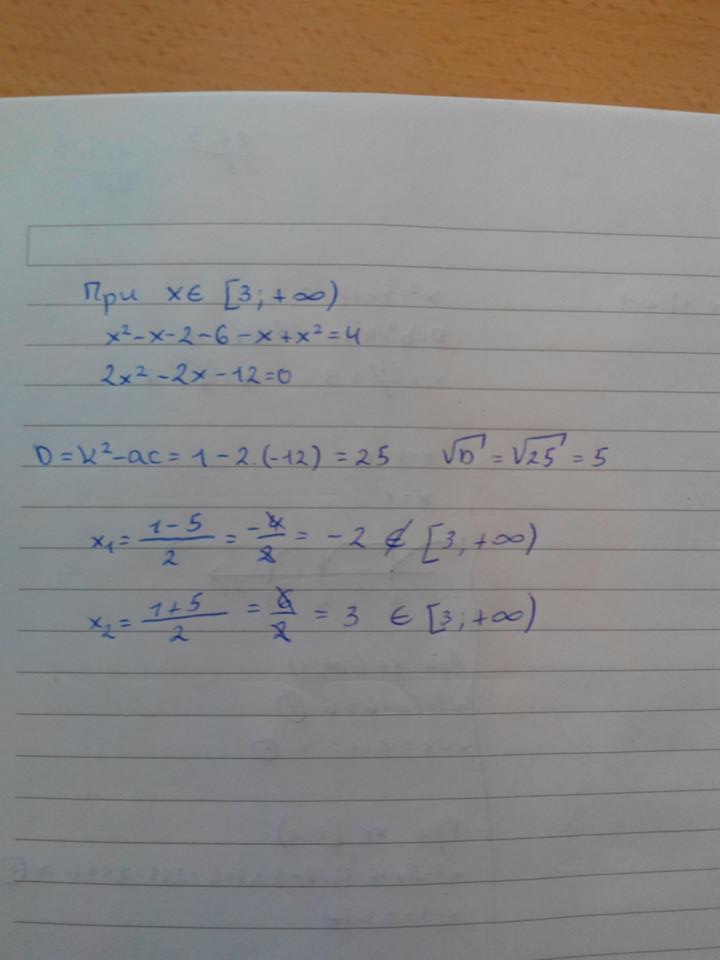 При x∈ [3; +∞)
x²-x-2-6-x+x²=4
2x²-2x-12=0
D=k²-ac= 1-2.(-12) = 25 √D = √25 = 5
x₁= (1-5)/2 = -4/2 = -2 ∉ [3; +∞)
x₂= (1+5)/2 = 6/2 = 3 ∈ [3; +∞)